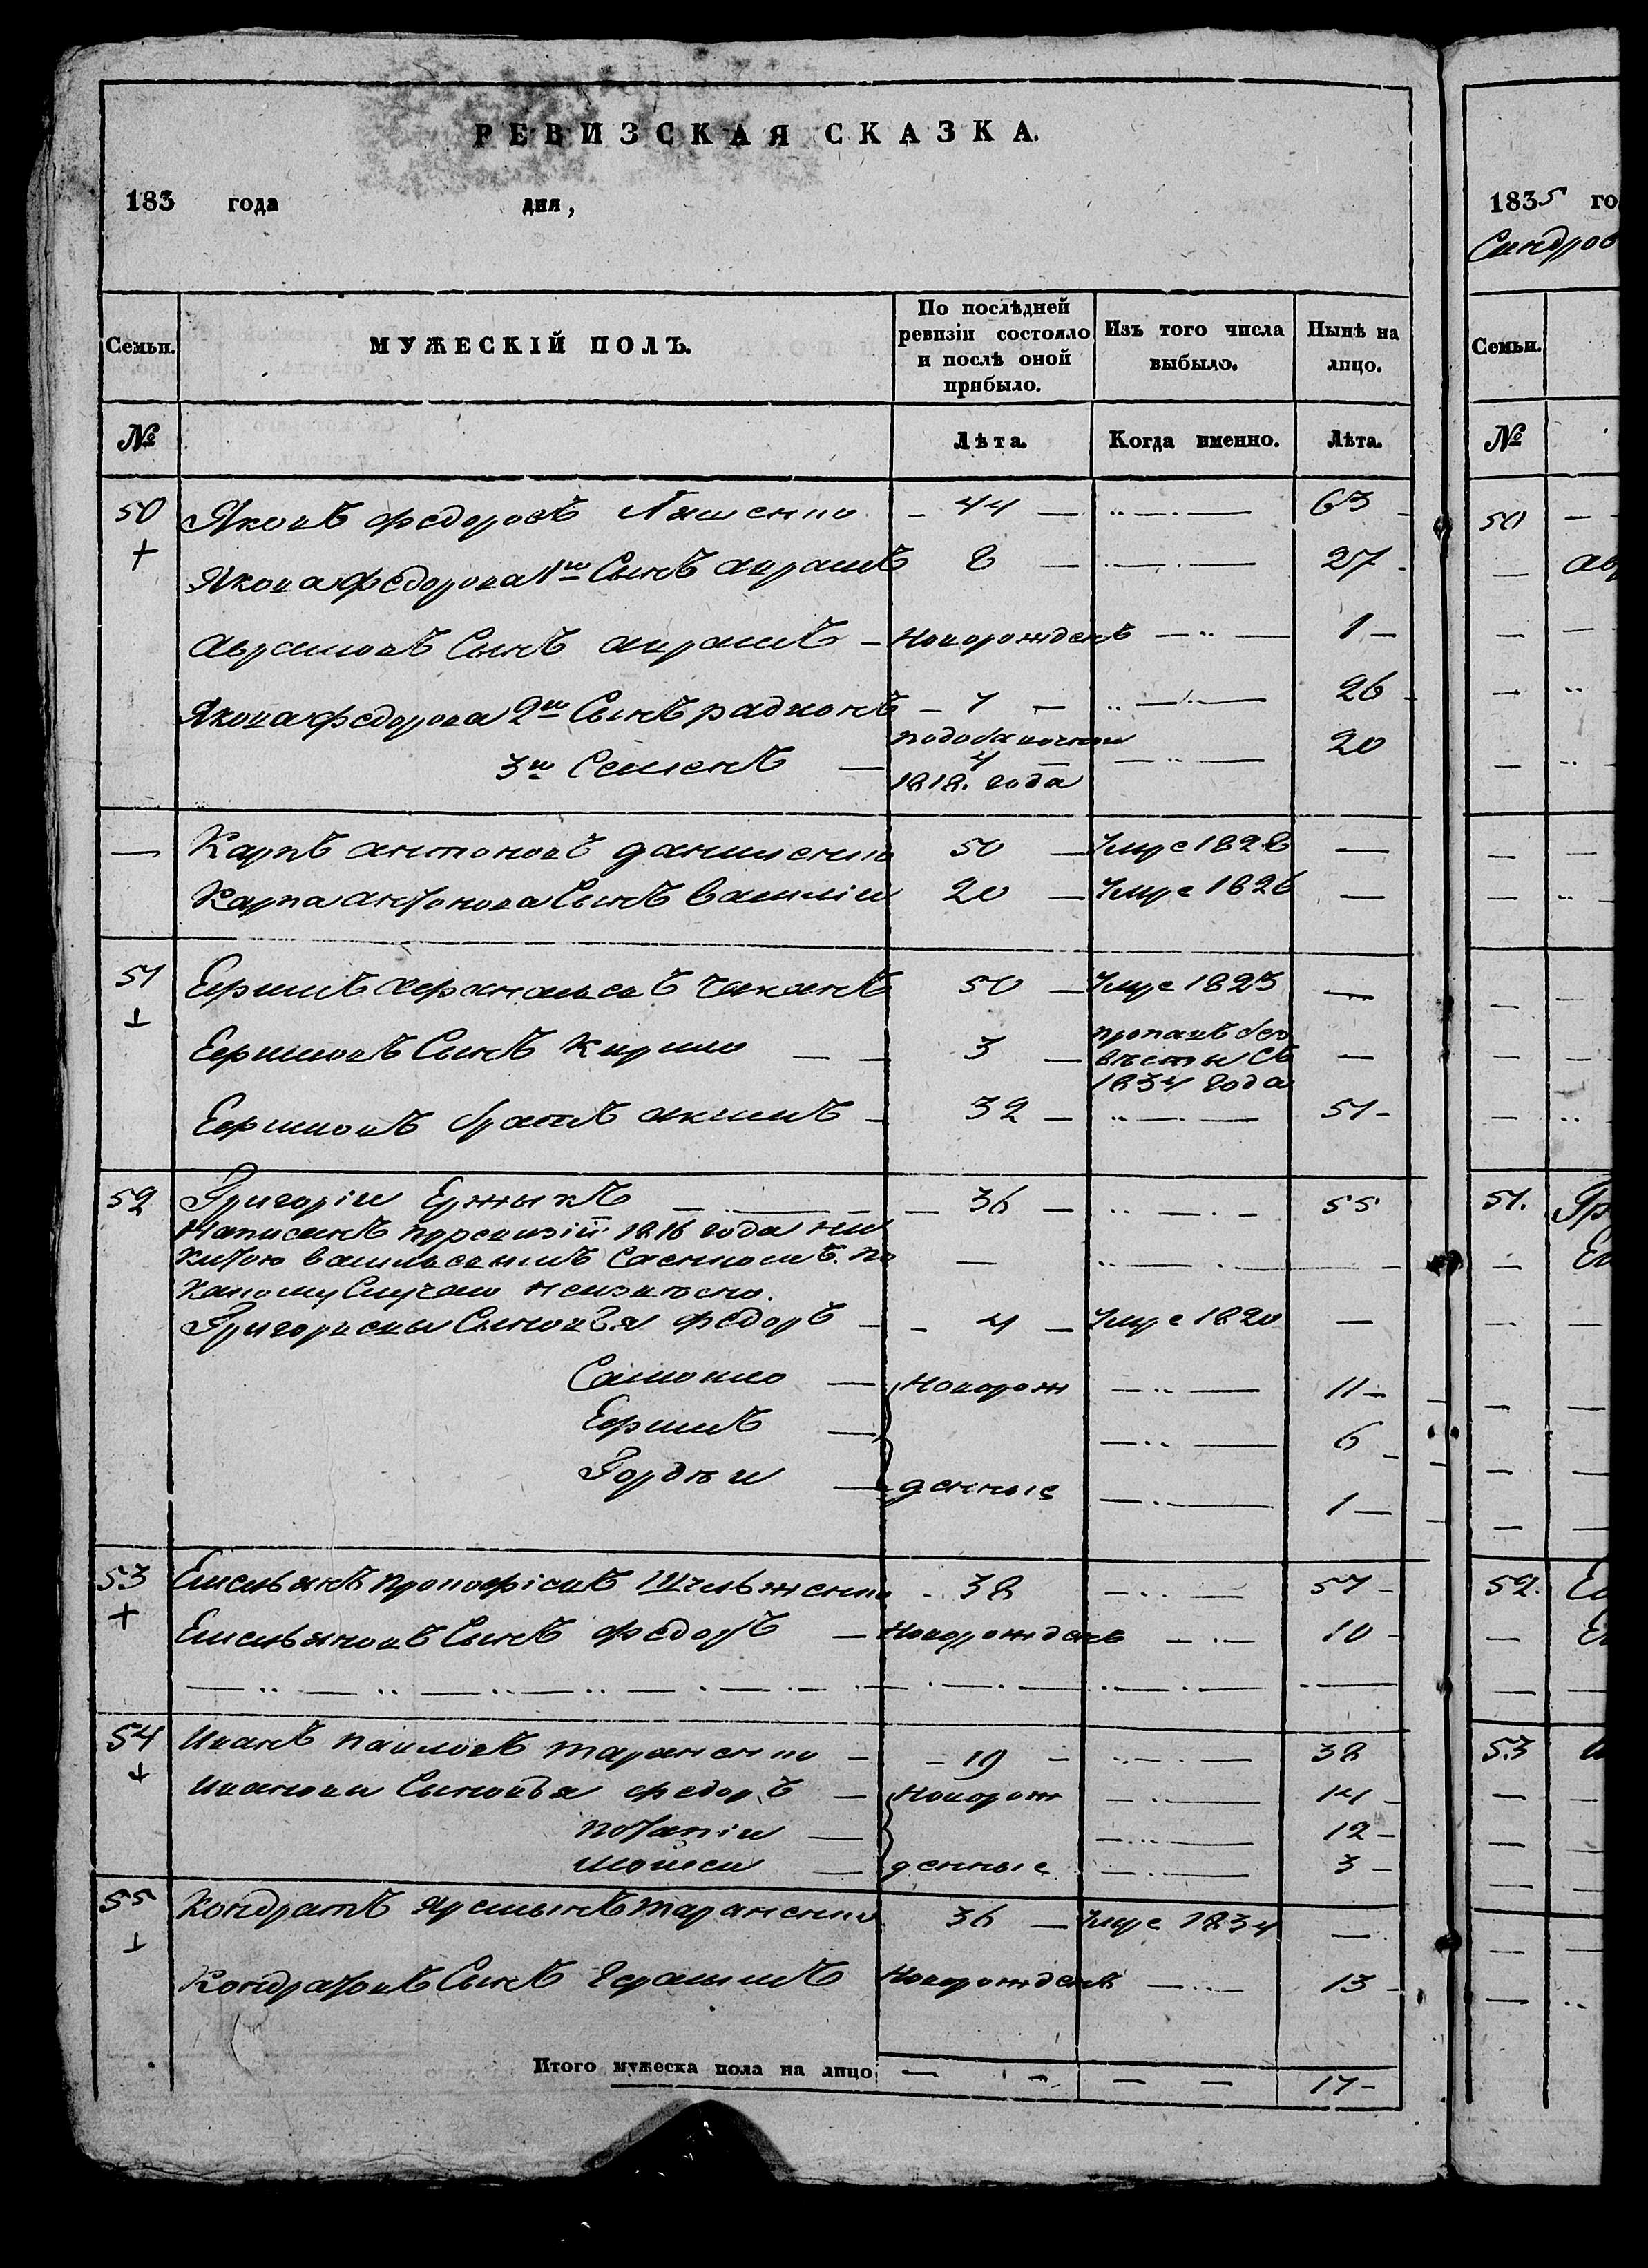 РЕВИЗСКАЯ СКАЗКА.
183 года дня,
Семьи. МУЖЕСКІЙ ПОЛЪ. По послѣдней ревизіи состояло и послѣ оной прибыло. Изъ того числа выбыло. Нынѣ на лицо.
№ Лѣта. Когда именно. Лѣта.
50 Яковъ Федоровъ 44 63
Якова Федорова 1й Сынъ авраамъ 8 27
Аврамовъ Сынъ авраамъ Новорожденъ 1
Якова Федорова 2й Сынъ радионъ 7 26
3й Семенъ 4 20
1818. года
Карпъ антоновъ даниленко 50 Умре 1828
Карпа антонова Сынъ василій 20 Умре 1826
51 Ефимъ афанасьевъ 50 Умре 1823
Ефимовъ Сынъ Кирило 3 пропавъ безъ вѣсты Съ 1834 года
Ефимовъ братъ акимъ 32 51
52 Григоріи 36 55
Написанъ поревизіи 1816 года ни
китою васильевымъ по
какому Случаю неизвѣсно.
Григорьевы Сыновья федоръ 4 Умре 1820
Самоило Новорож 11
Ефимъ 6
Гордѣи денные 1
53 Емельянъ прокофіевъ 38 57
Емельяновъ Сынъ федоръ Новорожденъ 10
54 Иванъ павловъ тараненко 19 38
Ивановы Сыновья федоръ Новорож 14
потапіи 12
Моисеи денные 3
55 Кондратъ тараненко 36 Умре 1834
Кондратовъ Сынъ Герасимъ Новорожденъ 13
Итого мужеска пола на лицо 17
1835 го
Семьи.
№
50
51. Гр
52. Ем
53